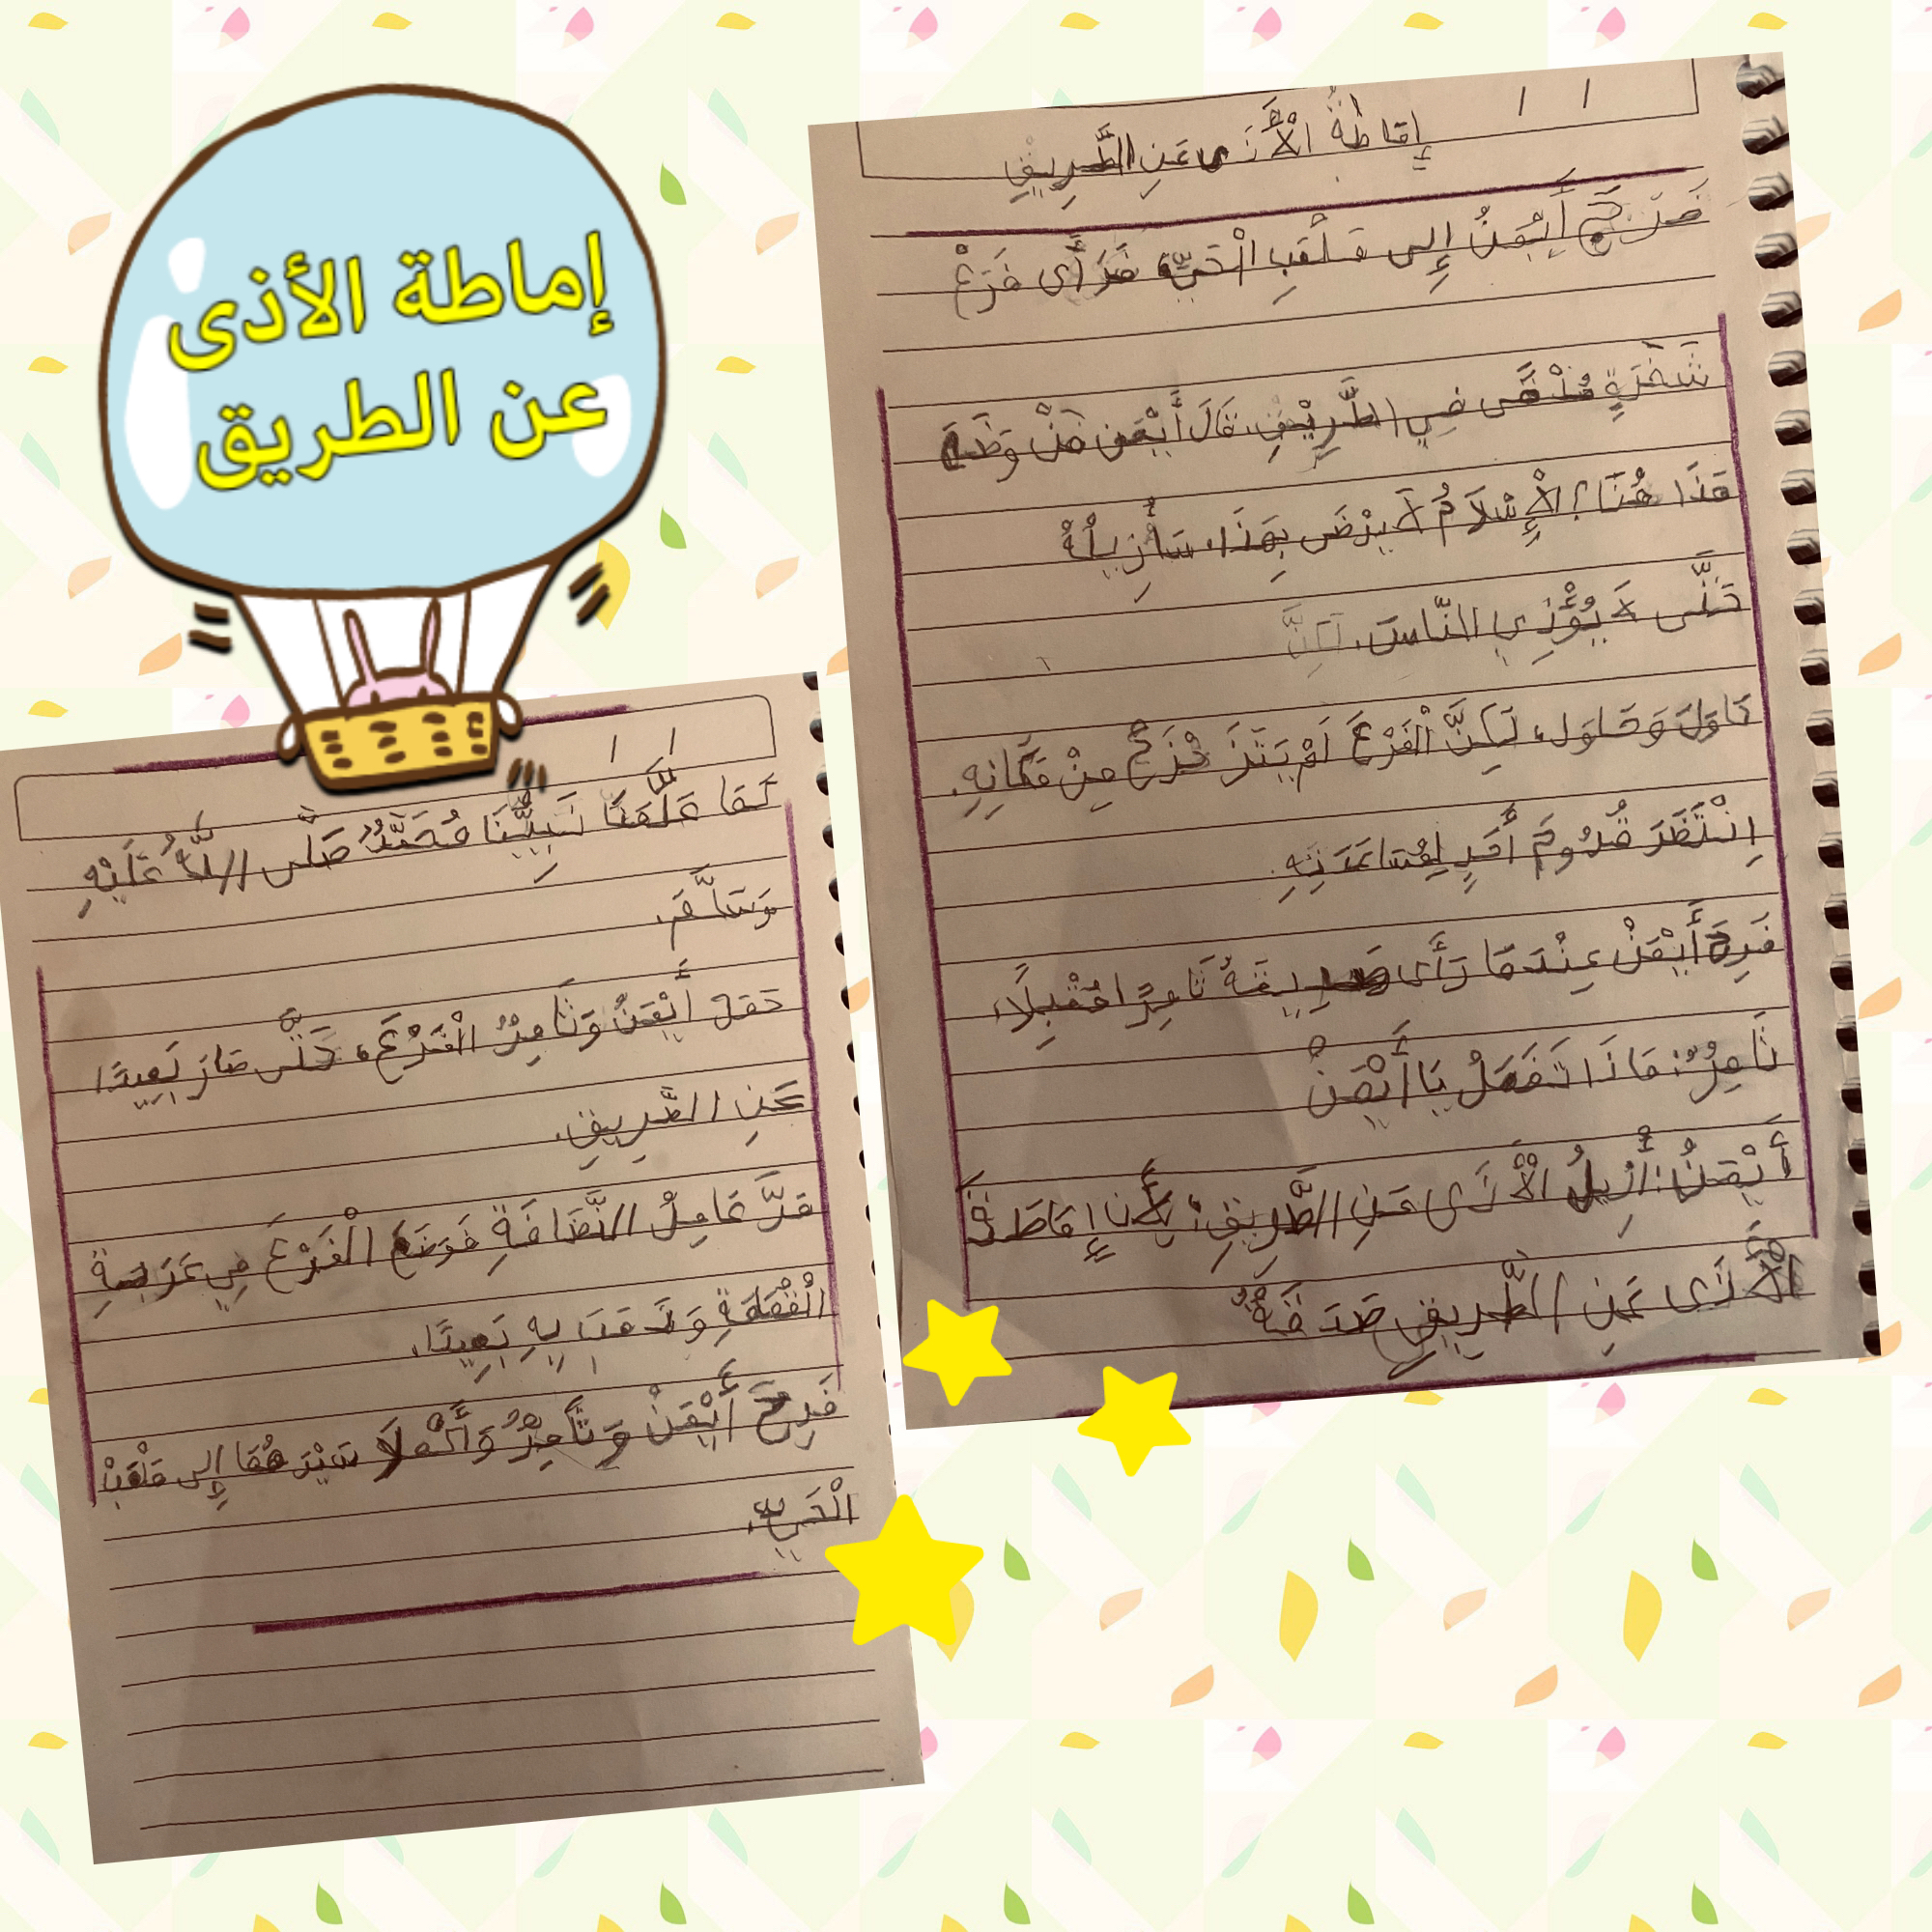 إماطة الأذى
عن الطريق
إِمَاطَةُ الْأَذَى عَنِ الطَّرِيقِ
خَرَجَ أَيْمَنُ إِلى مَلْعَبِ الْحَيِّ، فَرَأَى فَرْعَ
شَجَرَةٍ مُلْقًى فِي الطَّرِيْقِ، قَالَ أَيْمَن مَنْ وَضَعَ
هَذَا هُنَا؟ الْإِسْلَامُ لَا يَرْضَى بِهَذَا، سَأُزِيلُهُ
حَتَّى لَا يُؤْذِي النَّاسَ، لَكِنَّ
حَاوَلَ وَحَاوَل، لَكِنَّ الْفَرْعَ لَمْ يَتَزَحْزَحْ مِنْ مَكَانِهِ.
اِنْتَظَرَ قُدُومَ أَحَدٍ لِمُسَاعَدَتِهِ.
فَرِحَ أَيْمَنْ عِنْدَمَا رَأَى صَدِيقَهُ ثَامِرًا مُقْبِلًا،
ثَامِرُ: مَاذَا تَفْعَلُ يَا أَيْمَنْ
أَيْمَنُ: أُزِيلُ الْأَذَى عَنِ الطَّرِيقِ؛ لِأَن إِمَاطَة
الْأَذَى عَنِ الطَّرِيقِ صَدَقَةٌ
كَمَا عَلَّمَنَا نَبِيُّنَا مُحَمَّدٌ صَلَّى اللَّهُ عَلَيْهِ
وَسَلَّمَ.
حَمَلَ أَيْمَنُ وَثَامِرُ الْفَرْعَ، حَتَّى صَارَ بَعِيدًا
عَنِ الطَّرِيقِ.
مَرَّ عَامِلُ النَّظَافَةِ فَوَضَعَ الْفَرْعَ فِي عَرَبَةِ
الْقُمَامَةِ وَذَهَبَ بِهِ بَعِيدًا.
فَرِحَ أَيْمَنْ وَثَامِرُ وَأَكْمَلَا سَيْرَهُمَا إِلى مَلْعَبْ
الْحَيِّ.